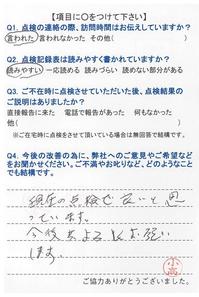 【項目に○をつけて下さい】
Q1. 点検の連絡の際、訪問時間はお伝えしていますか?
言われた 言われなかった その他( )
Q2. 点検記録表は読みやすく書かれていますか?
読みやすい 一応読める 読みづらい 読めない部分がある
Q3. ご不在時に点検させていただいた後、点検結果の
ご説明はありましたか?
直接報告に来た 電話で報告があった 何もなかった
他( )
※ご在宅時に点検をさせて頂いている場合は無回答で結構です。
Q4. 今後の改善の為に、弊社へのご意見やご希望など
をお聞かせください。ご不満やお叱りなど、どのようなこと
でも結構です。
現在の点検で良いと思
っています。
今後もよろしくお願い
します。
小高
ご協力ありがとうございました。